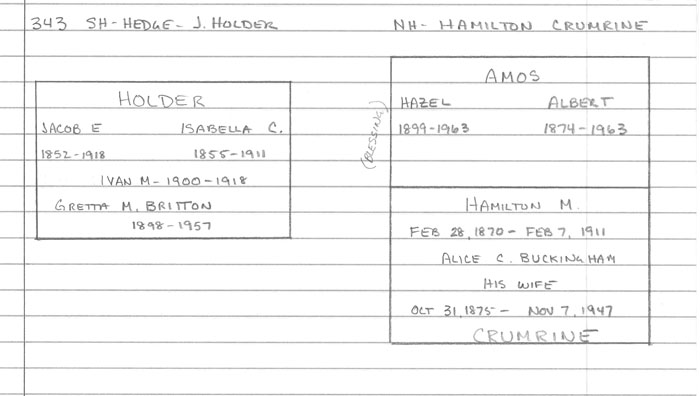 343 SH-HEDGE- J. HOLDER
NH- HAMILTON CRUMRINE
HOLDER
JACOB E ISABELLA C.
1852-1918 1855-1911
IVAN M- 1900-1918
GRETTA M. BRITTON
1898-1957
(BLESSING)
AMOS
HAZEL ALBERT
1899-1963 1874-1963
HAMILTON M.
FEB 28, 1870- FEB 7, 1911
ALICE C. BUCKINGHAM
HIS WIFE
OCT 31, 1875- NOV 7, 1947
CRUMRINE